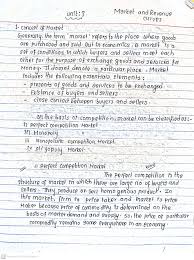 Unit: 5
Market and Revenue
curves
1. Concept of Market
Generally the term 'market' refers to the place where goods
are purchased and sold. But in economics, a market is a
set of conditions in which buyers and sellers meet each
other for the purpose of exchange goods and services for
money. It should denote a particular place. Market
includes the following essential elements:
- presents of goods and services to be exchanged
- Existence of buyers and sellers
- close contact between buyers and sellers.
on the basis of competition, market can be classified
I. perfect competition Market
II. Monopoly
III. Monopolistic competition Market
IV. oligopoly Market.
a. perfect competition Market
The perfect competition is the
structure of market in which there are large no of buyers and
sellers. They produce or sell homogenous product. In
this market, firm is price taker and market is price
maker because price of commodity is determined on the
basis of market demand and supply. So, the price of particular
commodity remains same everywhere in an economy